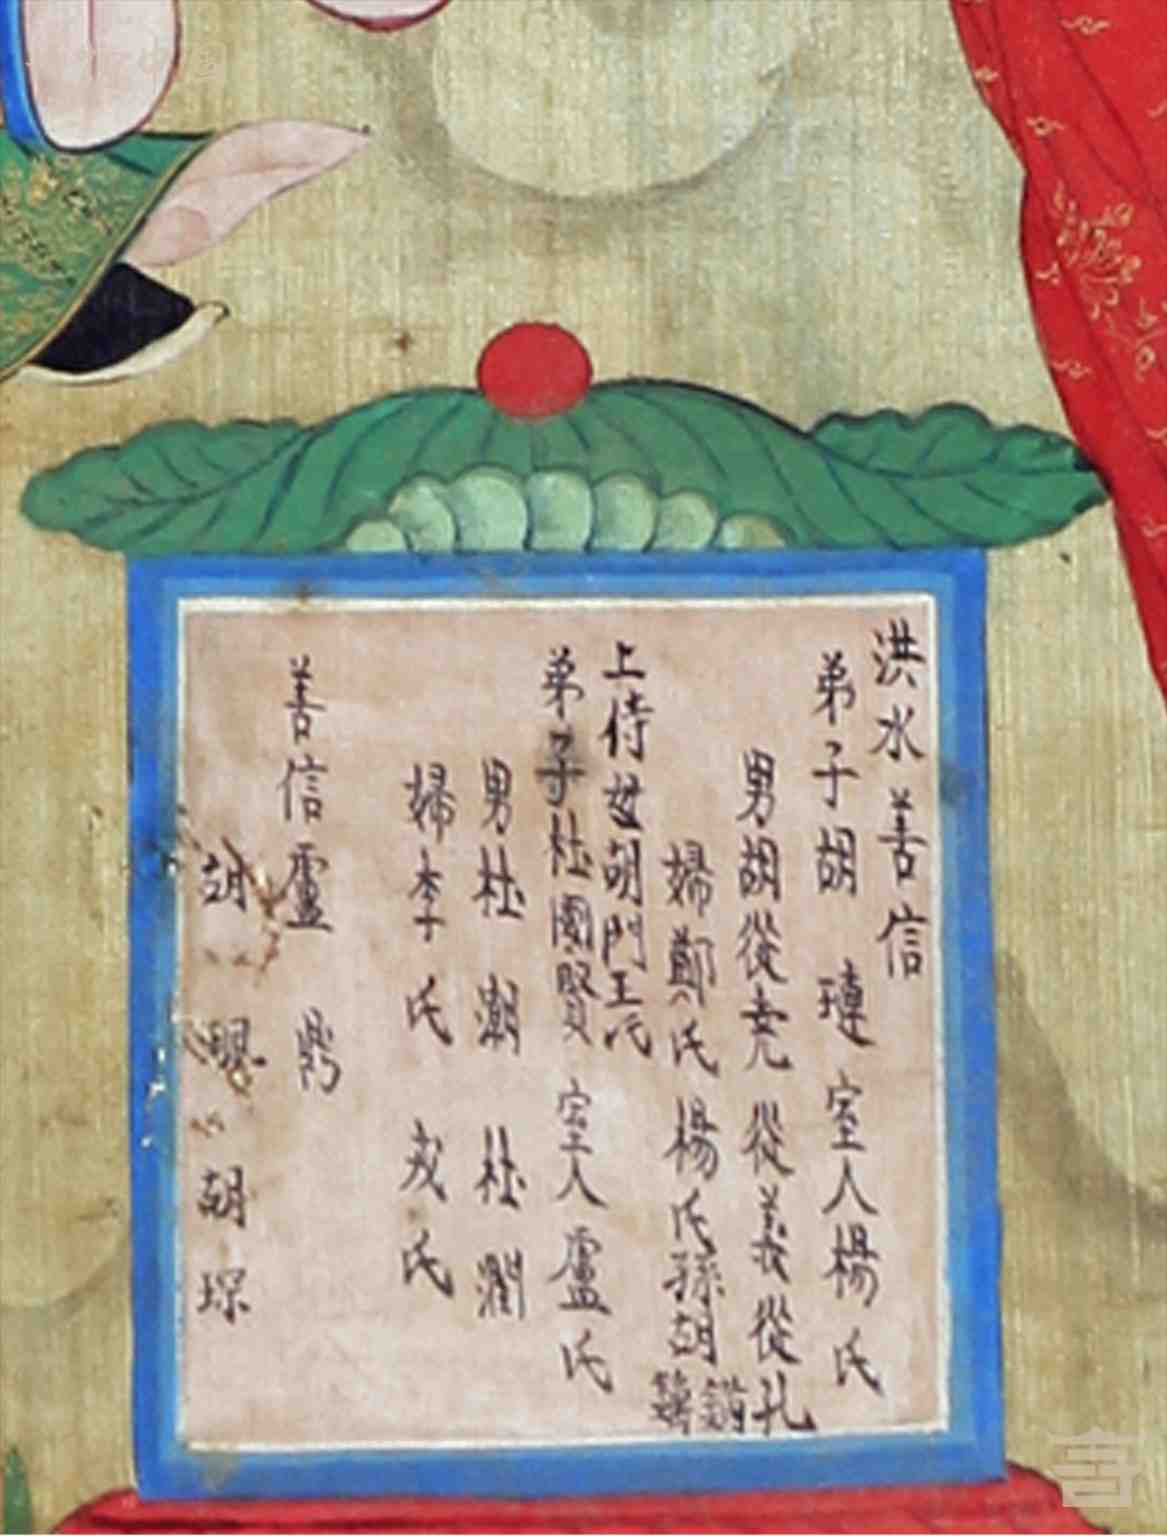 洪水善信
弟子胡璉室人楊氏
男胡從堯從義從礼
婦鄭氏楊氏孫胡
上侍母胡門王氏
弟子杜團賢室人盧氏
男杜潮杜潤
婦李氏戎氏
善信盧鸞
胡胡琛